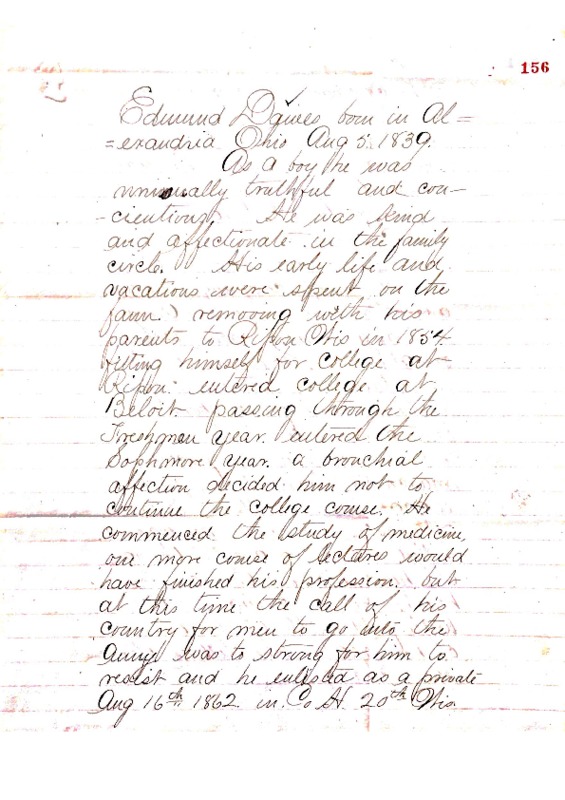 156
Edmund Dawes born in Al=
=exandria Ohio Aug 5. 1839.
As a boy he was
unusually truthful and con-
-cientious He was kind
and affectionate in the family
circle. His early life and
vacations were spent on the
farm removing with his
parents to Ripon Wis in 1854
fitting himself for college at
Ripon. entered college at
Beloit passing through the
Freshman year. entered the
Sophmore year. a bronchial
affection decided him not to
continue the college course. He
commenced the study of medicine,
one more course of lectures would
have finished his profession. but
at this time the call of his
country for men to go into the
Army was to strong for him to
resist and he enlisted as a private
Aug 16th 1862. in Co H. 20th Wis.